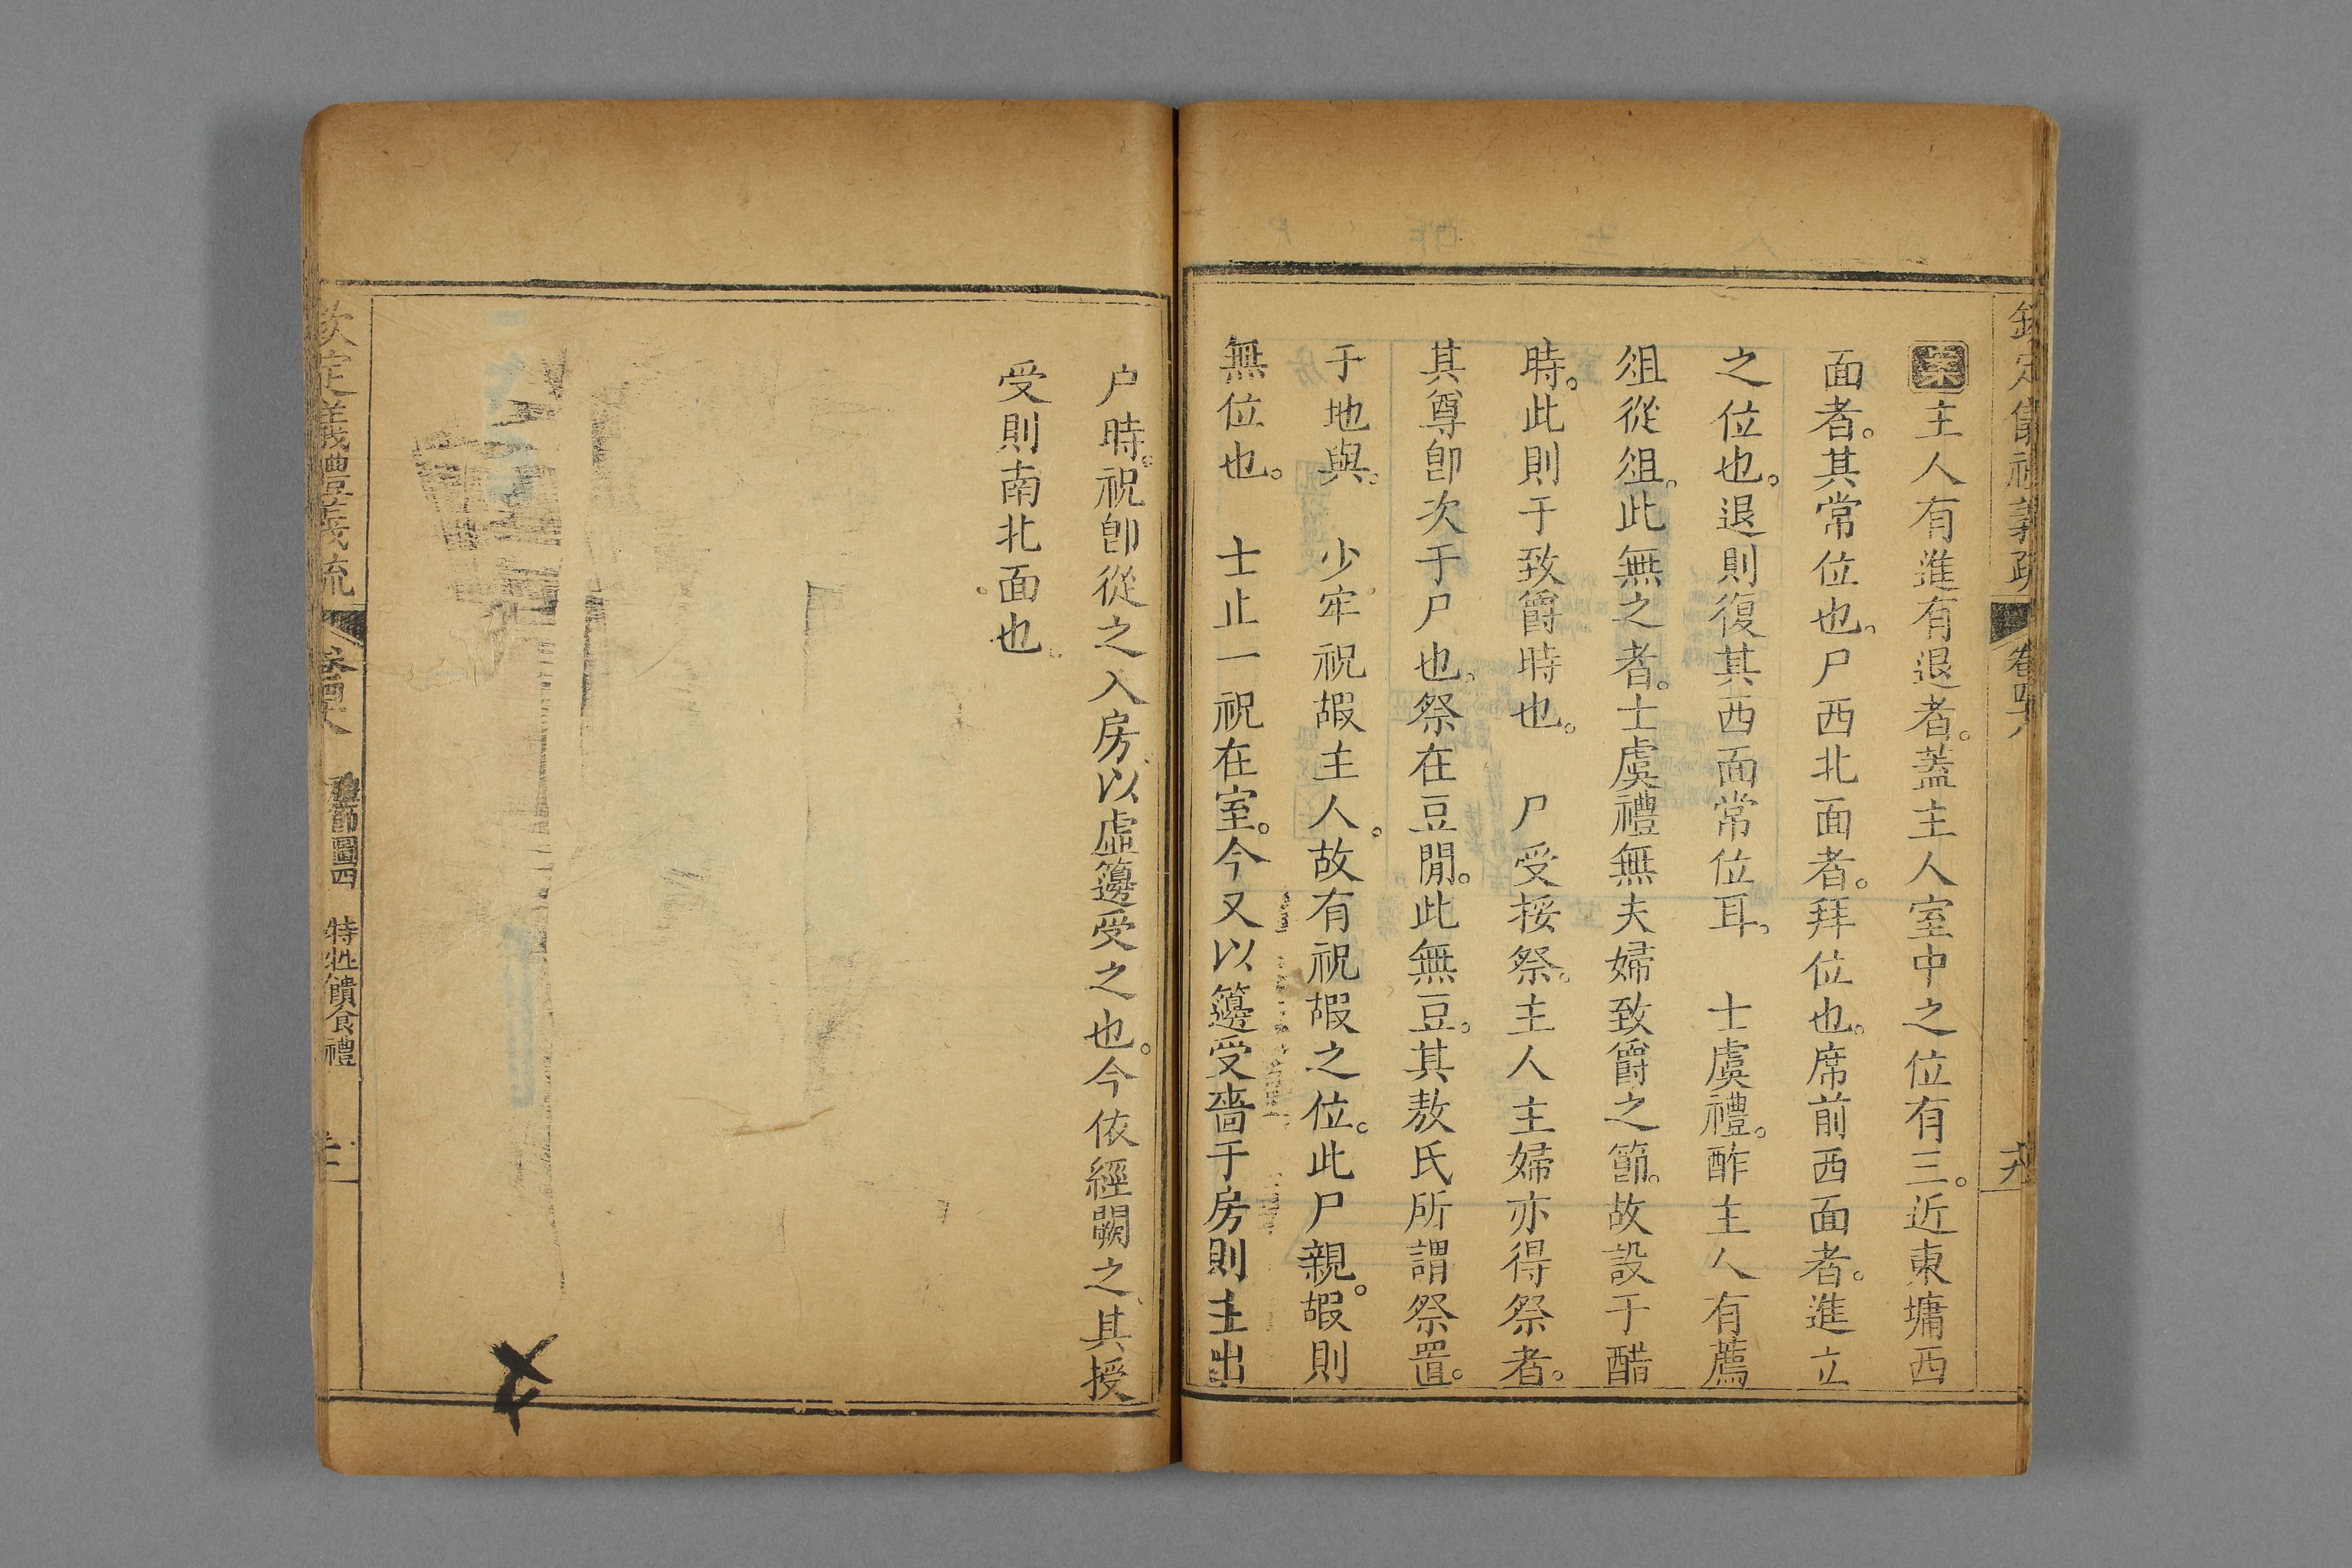 欽定儀禮義疏 卷四十八
案主人有進有退者。蓋主人室中之位有三。近東墉西
面者。其常位也。尸西北面者。拜位也。席前西面者。進立
之位也。退則復其西面常位耳。 士虞禮。酢主人有薦
俎從俎。此無之者。士虞禮無夫婦致爵之節。故設于醋
時。此則于致爵時也。 尸受挼祭。主人主婦亦得祭者。
其尊卽次于尸也。祭在豆閒。此無豆。其敖氏所謂祭置。
于地與。 少牢祝嘏主人。故有祝嘏之位。此尸親。嘏則
無位也。 士止一祝在室。今又以籩受嗇于房則主出
户時。祝卽從之入房以虛籩受之也。今依經闕之其授
受則南北面也。
欽定儀禮義疏 卷四十八 禮節圖四 特牲饋食禮